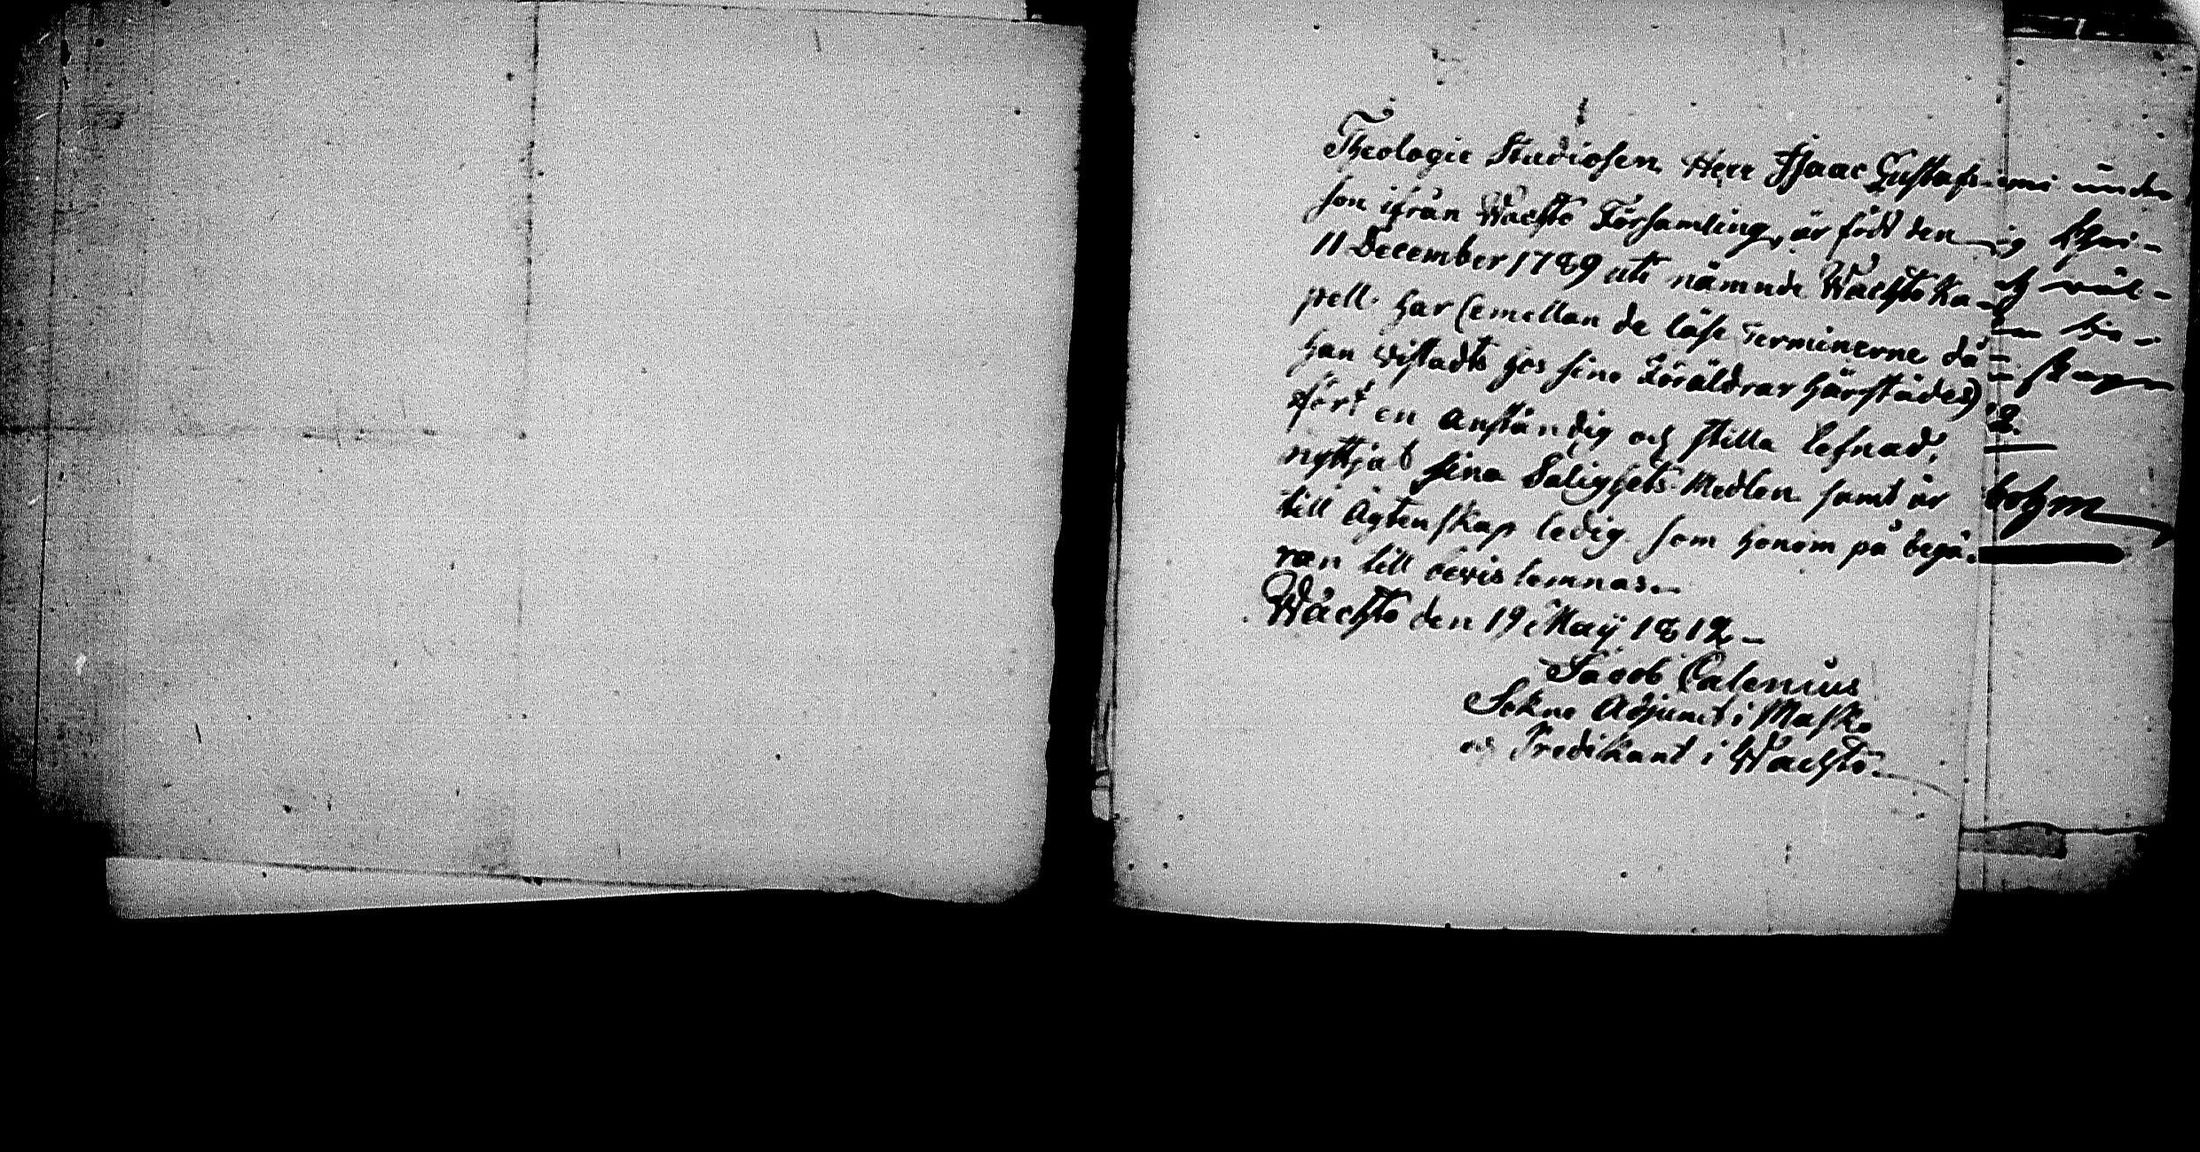 Theologie Studiosen Herr Isaac Gustafs-
son ifrån Wachto Församling, är född den
11 December 1789 uti nämnde Wachto Ka-
pell. har (emellan de läse Terminerne då
han vistadts hos sine Föräldrar härstädes)
fört en anständig och stilla lefnad,
nyttjat sina Salighets Medlen samt är
till Ägtenskap ledig. som honom på begä-
ran till bevis lemnas.
Wachto den 19 Maÿ 1812
Jacob Calenius
Sokne Adjunct i Masko
och Predikant i Wachto.